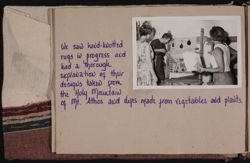 We saw hand-knotted
rugs in progress and
had a thorough
explanation of their
designs taken from
the Holy Mountain
of Mt. Athos and dyes made from vegetables and plants.